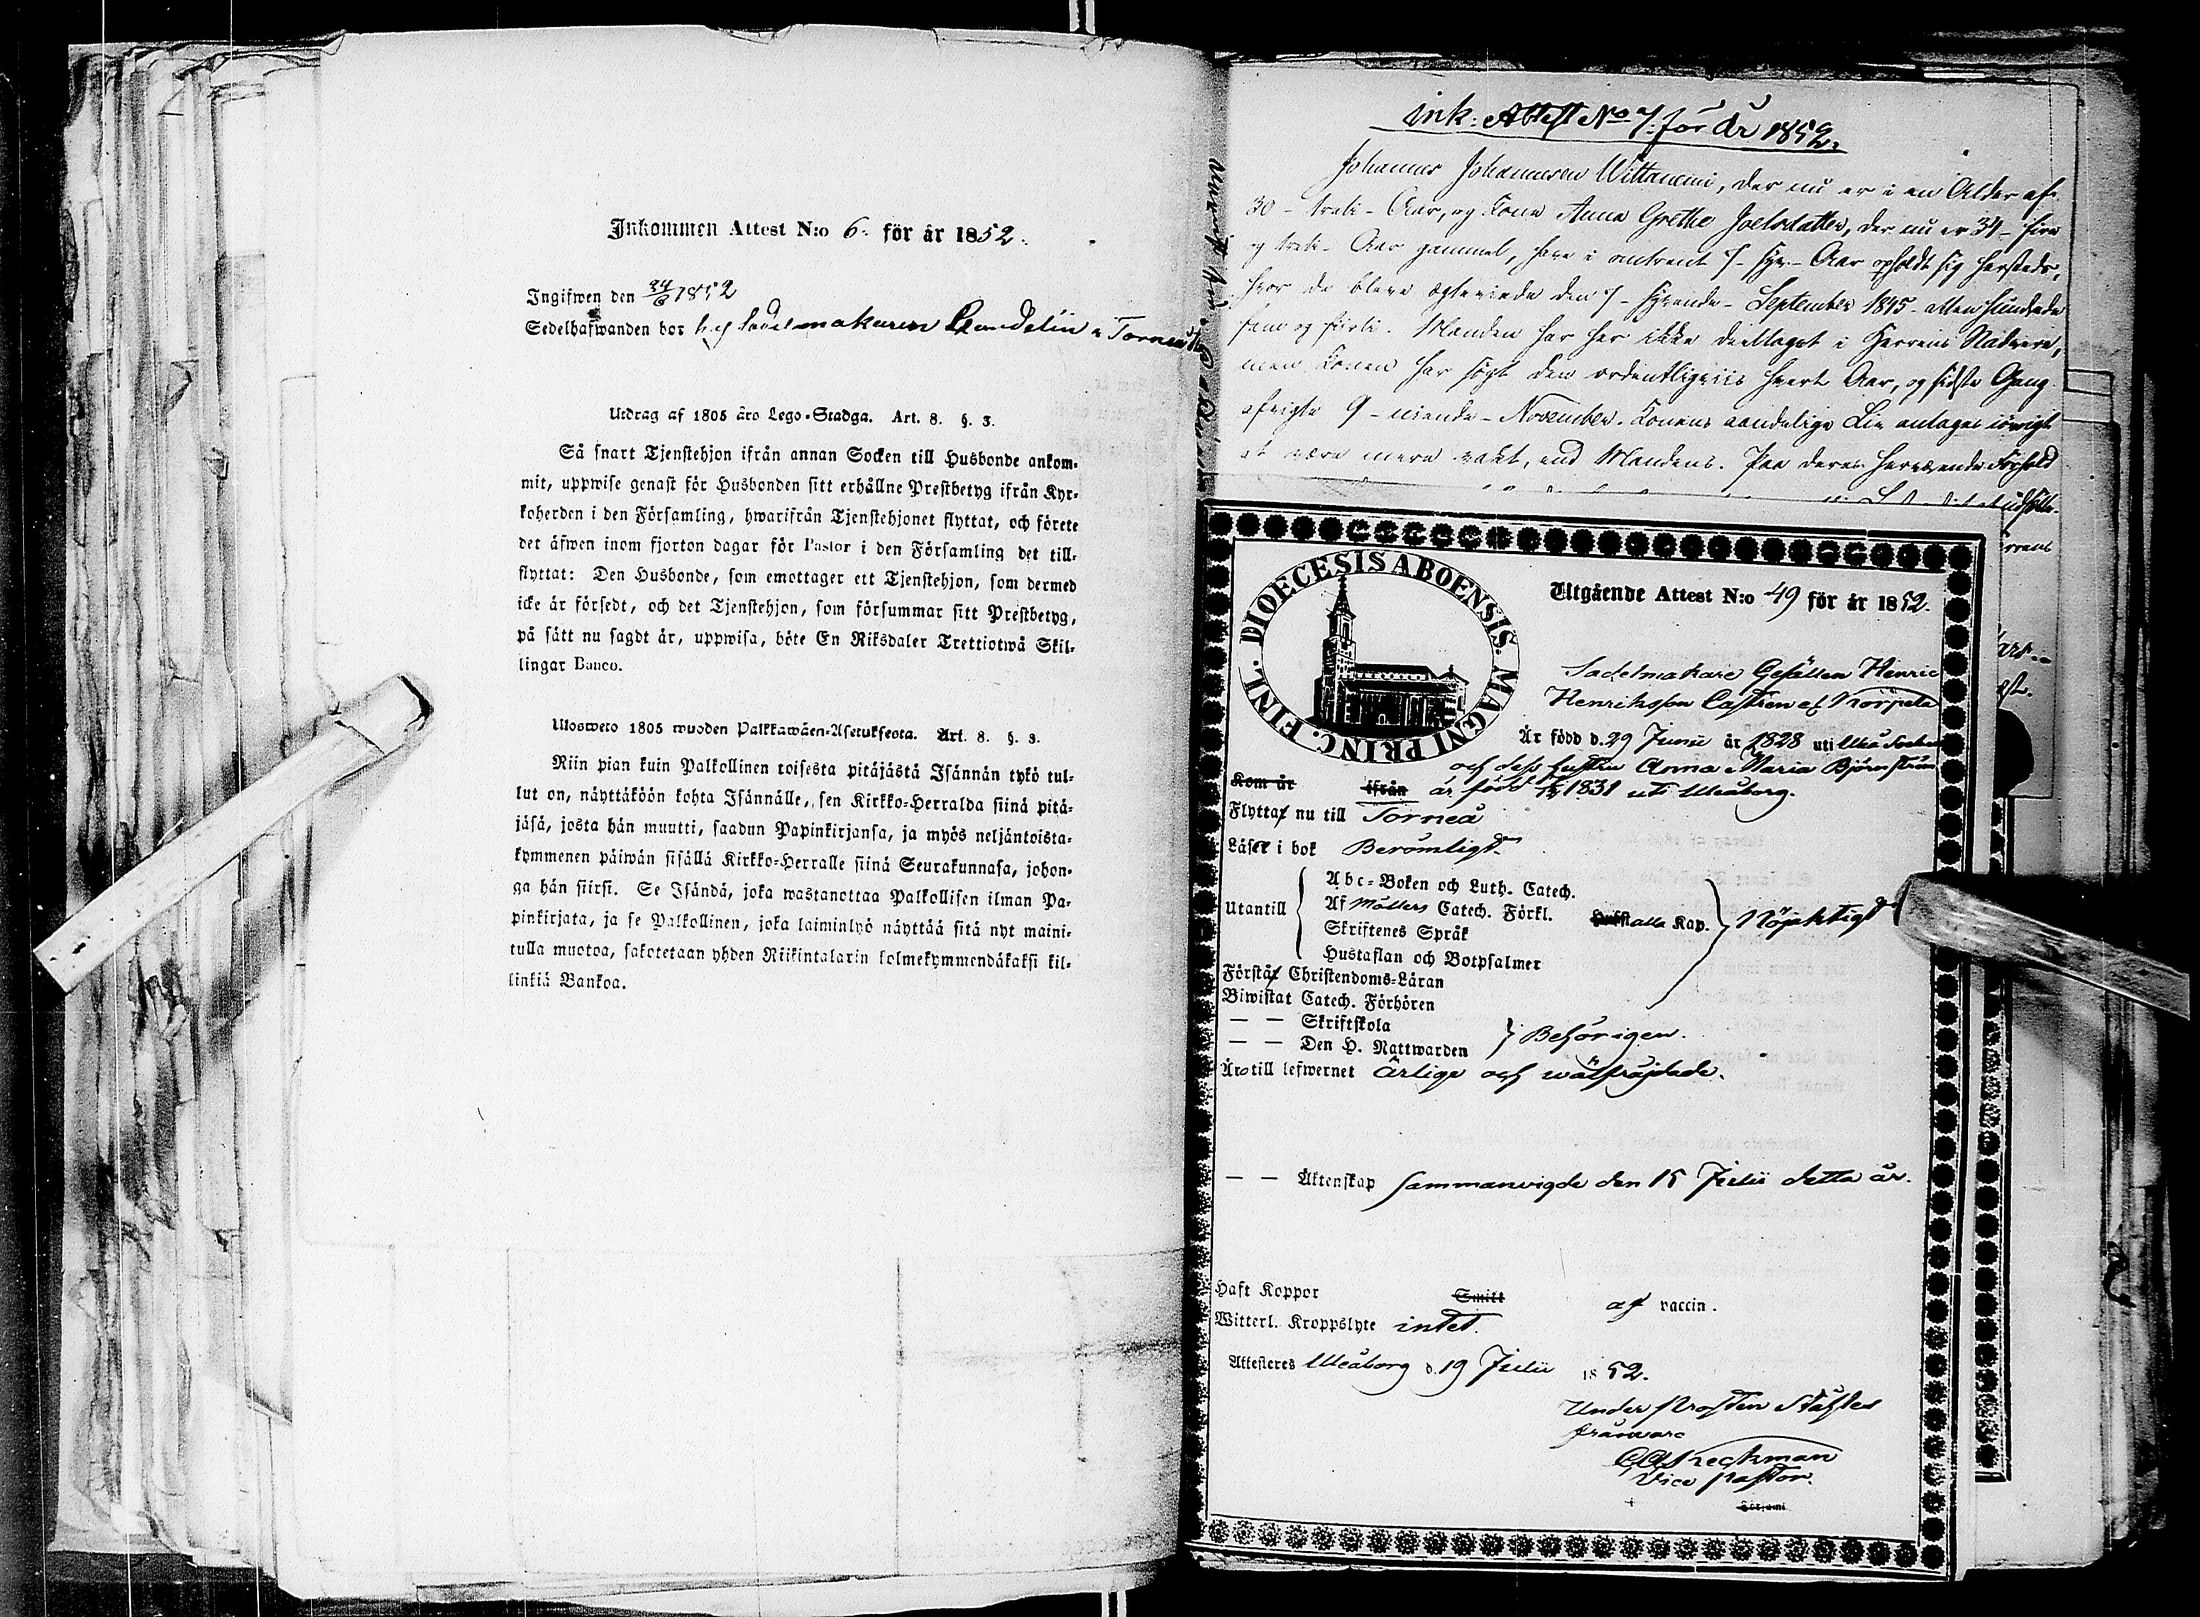 Inkommen Attest N:o 6. för år 1852.
Ingifwen den 24/6 1852
Sedelhafwanden bor hos sadelmakaren Tornea
Utdrag af 1805 års Lego-Stadga. Art. 8. §. 3.
Så snart Tjenstehjon ifrån annan Socken till Husbonde ankom-
mit, uppwise genast för Husbonden sitt erhållne Prestbetyg ifrån Kyr-
koherden i den Församling, hwarifrån Tjenstehjonet flyttat, och förete
det äfwen inom fjorton dagar för Pastor i den Församling det till-
flyttat: Den Husbonde, som emottager ett Tjenstehjon, som dermed
icke är försedt, och det Tjenstehjon, som försummar sitt Prestbetyg,
på sätt nu sagdt är, uppwisa, böte En Riksdaler Trettiotwå Skil-
lingar Banco.
Ulosweto 1805 wuoden Palkkawäen-Asetuksesta. Art. 8. §. 3.
Niin pian kuin Palkollinen toisesta pitäjästä Isännän tykö tul-
lut on, näyttäköön kohta Isännälle, sen Kirkko-Herralda siinä pitä-
jäsä, josta hän muutti, saadun Papinkirjansa, ja myös neljäntoista-
kymmenen päiwän sisällä Kirkko-Herralle siinä Seurakunnasa, johon-
ga hän siirsi. Se Isändä, joka wastanottaa Palkollisen ilman Pa-
pinkirjata, ja se Palkollinen, joka laiminlyö näyttää sitä nyt maini-
tulla muotoa, sakotetaan yhden Riikintalarin kolmekymmendäkaksi kil-
linkiä Bankoa.
ink: Attest No 7. för år 1852.
Johannes Johannesen Wittaniemi, der nu er i en Alder af
30 - treti - Aar, og Kone Anna Grethe Joelsdatter, der nu er 34 - fire
og treti - Aar gammel, have i omtrent 7 - syv - Aar opholdt sig hersteds,
hvor de bleve egteviede den 7 - syvende - September 1845 - atten hundrede
fem og firti. Manden har her ikke deeltaget i Herrens Nadvere,
men Konen har søgt den ordentligviis hvert Aar, og sidste Gang
afvigte 9 - niende - November. Konens aandelige Liv antages iøvrigt
at være mere vakt, end Mandens. Paa deres herværende Forhold
DIOECESIS ABOENSIS. MAGNI PRINC. FINL.
Utgående Attest N:o 49 för år 1852.
Sadelmakare Gesällen Henric
Henriksson Castren af Korpela
Är född d. 29 Junii år 1828 uti Uleå Socken
och dess hustru Anna Maria Björnström
Kom år ifrån är född 1831 uti Uleåborg.
Flytta nu till Torneå
Läser i bok Berömligt
Utantill
Abc-Boken och Luth. Catech.
Af Möllers Catech. Förkl. alla Kap. Nöjaktigt
Skriftenes Språk
Hustaflan och Botpsalmer
Förstå Christendoms-Läran
Biwistat Catech. Förhören
— — Skriftskola
— — Den H. Nattwarden Behörigen.
Äro till lefwernet ärlige och wälfräjdade.
— — Äktenskap sammanvigde den 15 Julii detta år.
Haft Koppor Smitt af vaccin.
Witterl. Kroppslyte intet.
Attesteres Uleåborg d. 19 Julii 1852.
Under Prosten Ståhles
frånvaro
Vice pastor.